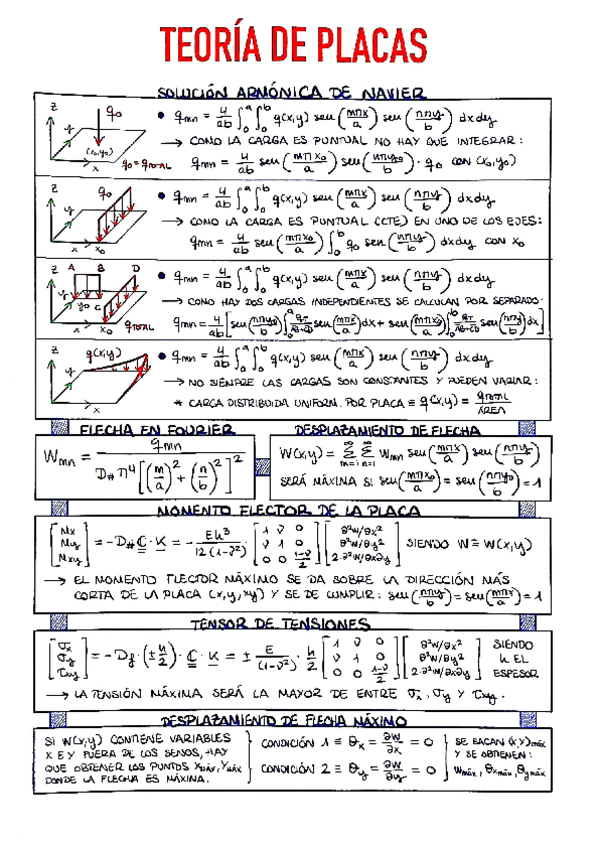 TEORÍA DE PLACAS
SOLUCIÓN ARMÓNICA DE NAVIER
z
y
q₀
(x₀,y₀)
x
q₀ = q_TOTAL
• q_mn = 4/ab ∫₀ᵃ ∫₀ᵇ q(x,y) sen(mπx/a) sen(nπy/b) dxdy
→ COMO LA CARGA ES PUNTUAL NO HAY QUE INTEGRAR:
q_mn = 4/ab sen(mπx₀/a) sen(nπy₀/b) · q₀ CON (x₀,y₀)
z
y
q₀
x
x₀
• q_mn = 4/ab ∫₀ᵃ ∫₀ᵇ q(x,y) sen(mπx/a) sen(nπy/b) dxdy
→ COMO LA CARGA ES PUNTUAL (CTE) EN UNO DE LOS EJES:
q_mn = 4/ab sen(mπx₀/a) ∫₀ᵇ q₀ sen(nπy/b) dxdy CON x₀
z
A B D
y
y₀ C
x
x₀
q_TOTAL
• q_mn = 4/ab ∫₀ᵃ ∫₀ᵇ q(x,y) sen(mπx/a) sen(nπy/b) dxdy
→ COMO HAY DOS CARGAS INDEPENDIENTES SE CALCULAN POR SEPARADO.
q_mn = 4/ab [sen(nπy₀/b) ∫₀ᵃ q_T/AB+CD sen(mπx/a) dx + sen(mπx₀/a) ∫₀ᵇ q_T/AB+CD sen(nπy/b) dx]
z
q(x,y)
y
x
• q_mn = 4/ab ∫₀ᵃ ∫₀ᵇ q(x,y) sen(mπx/a) sen(nπy/b) dxdy
→ NO SIEMPRE LAS CARGAS SON CONSTANTES Y PUEDEN VARIAR:
* CARGA DISTRIBUIDA UNIFORM. POR PLACA ≡ q(x,y) = q_TOTAL/ÁREA
FLECHA EN FOURIER
W_mn = q_mn / D_# π⁴[(m/a)² + (n/b)²]²
DESPLAZAMIENTO DE FLECHA
W(x,y) = ∞Σm=1 ∞Σn=1 W_mn sen(mπx/a) sen(nπy/b)
SERÁ MÁXIMA SI sen(mπx₀/a) = sen(nπy₀/b) = 1
MOMENTO FLECTOR DE LA PLACA
[Mx My Mxy] = -D_# C · K = - Eh³/12(1-ν²) [1 ν 0 ν 1 0 0 0 1-ν/2] [∂²W/∂x² ∂²W/∂y² 2·∂²W/∂x∂y] SIENDO W ≡ W(x,y)
→ EL MOMENTO FLECTOR MÁXIMO SE DA SOBRE LA DIRECCIÓN MÁS
CORTA DE LA PLACA (x,y,xy) Y SE DE CUMPLIR: sen(nπy/b) = sen(mπx/a) = 1
TENSOR DE TENSIONES
[σx σy τxy] = -D_f · (± h/2) · C · K = ± E/(1-ν²) · h/2 [1 ν 0 ν 1 0 0 0 1-ν/2] [∂²W/∂x² ∂²W/∂y² 2·∂²W/∂x∂y] SIENDO h EL ESPESOR
→ LA TENSIÓN MÁXIMA SERÁ LA MAYOR DE ENTRE σx, σy Y τxy.
DESPLAZAMIENTO DE FLECHA MÁXIMO
SI W(x,y) CONTIENE VARIABLES
X E Y FUERA DE LOS SENOS, HAY
QUE OBTENER LOS PUNTOS Xmáx, Ymáx
DONDE LA FLECHA ES MÁXIMA.
CONDICIÓN 1 ≡ θx = ∂W/∂x = 0
CONDICIÓN 2 ≡ θy = ∂W/∂y = 0
SE SACAN (x,y)máx
Y SE OBTIENEN:
Wmáx, θxmáx, θymáx